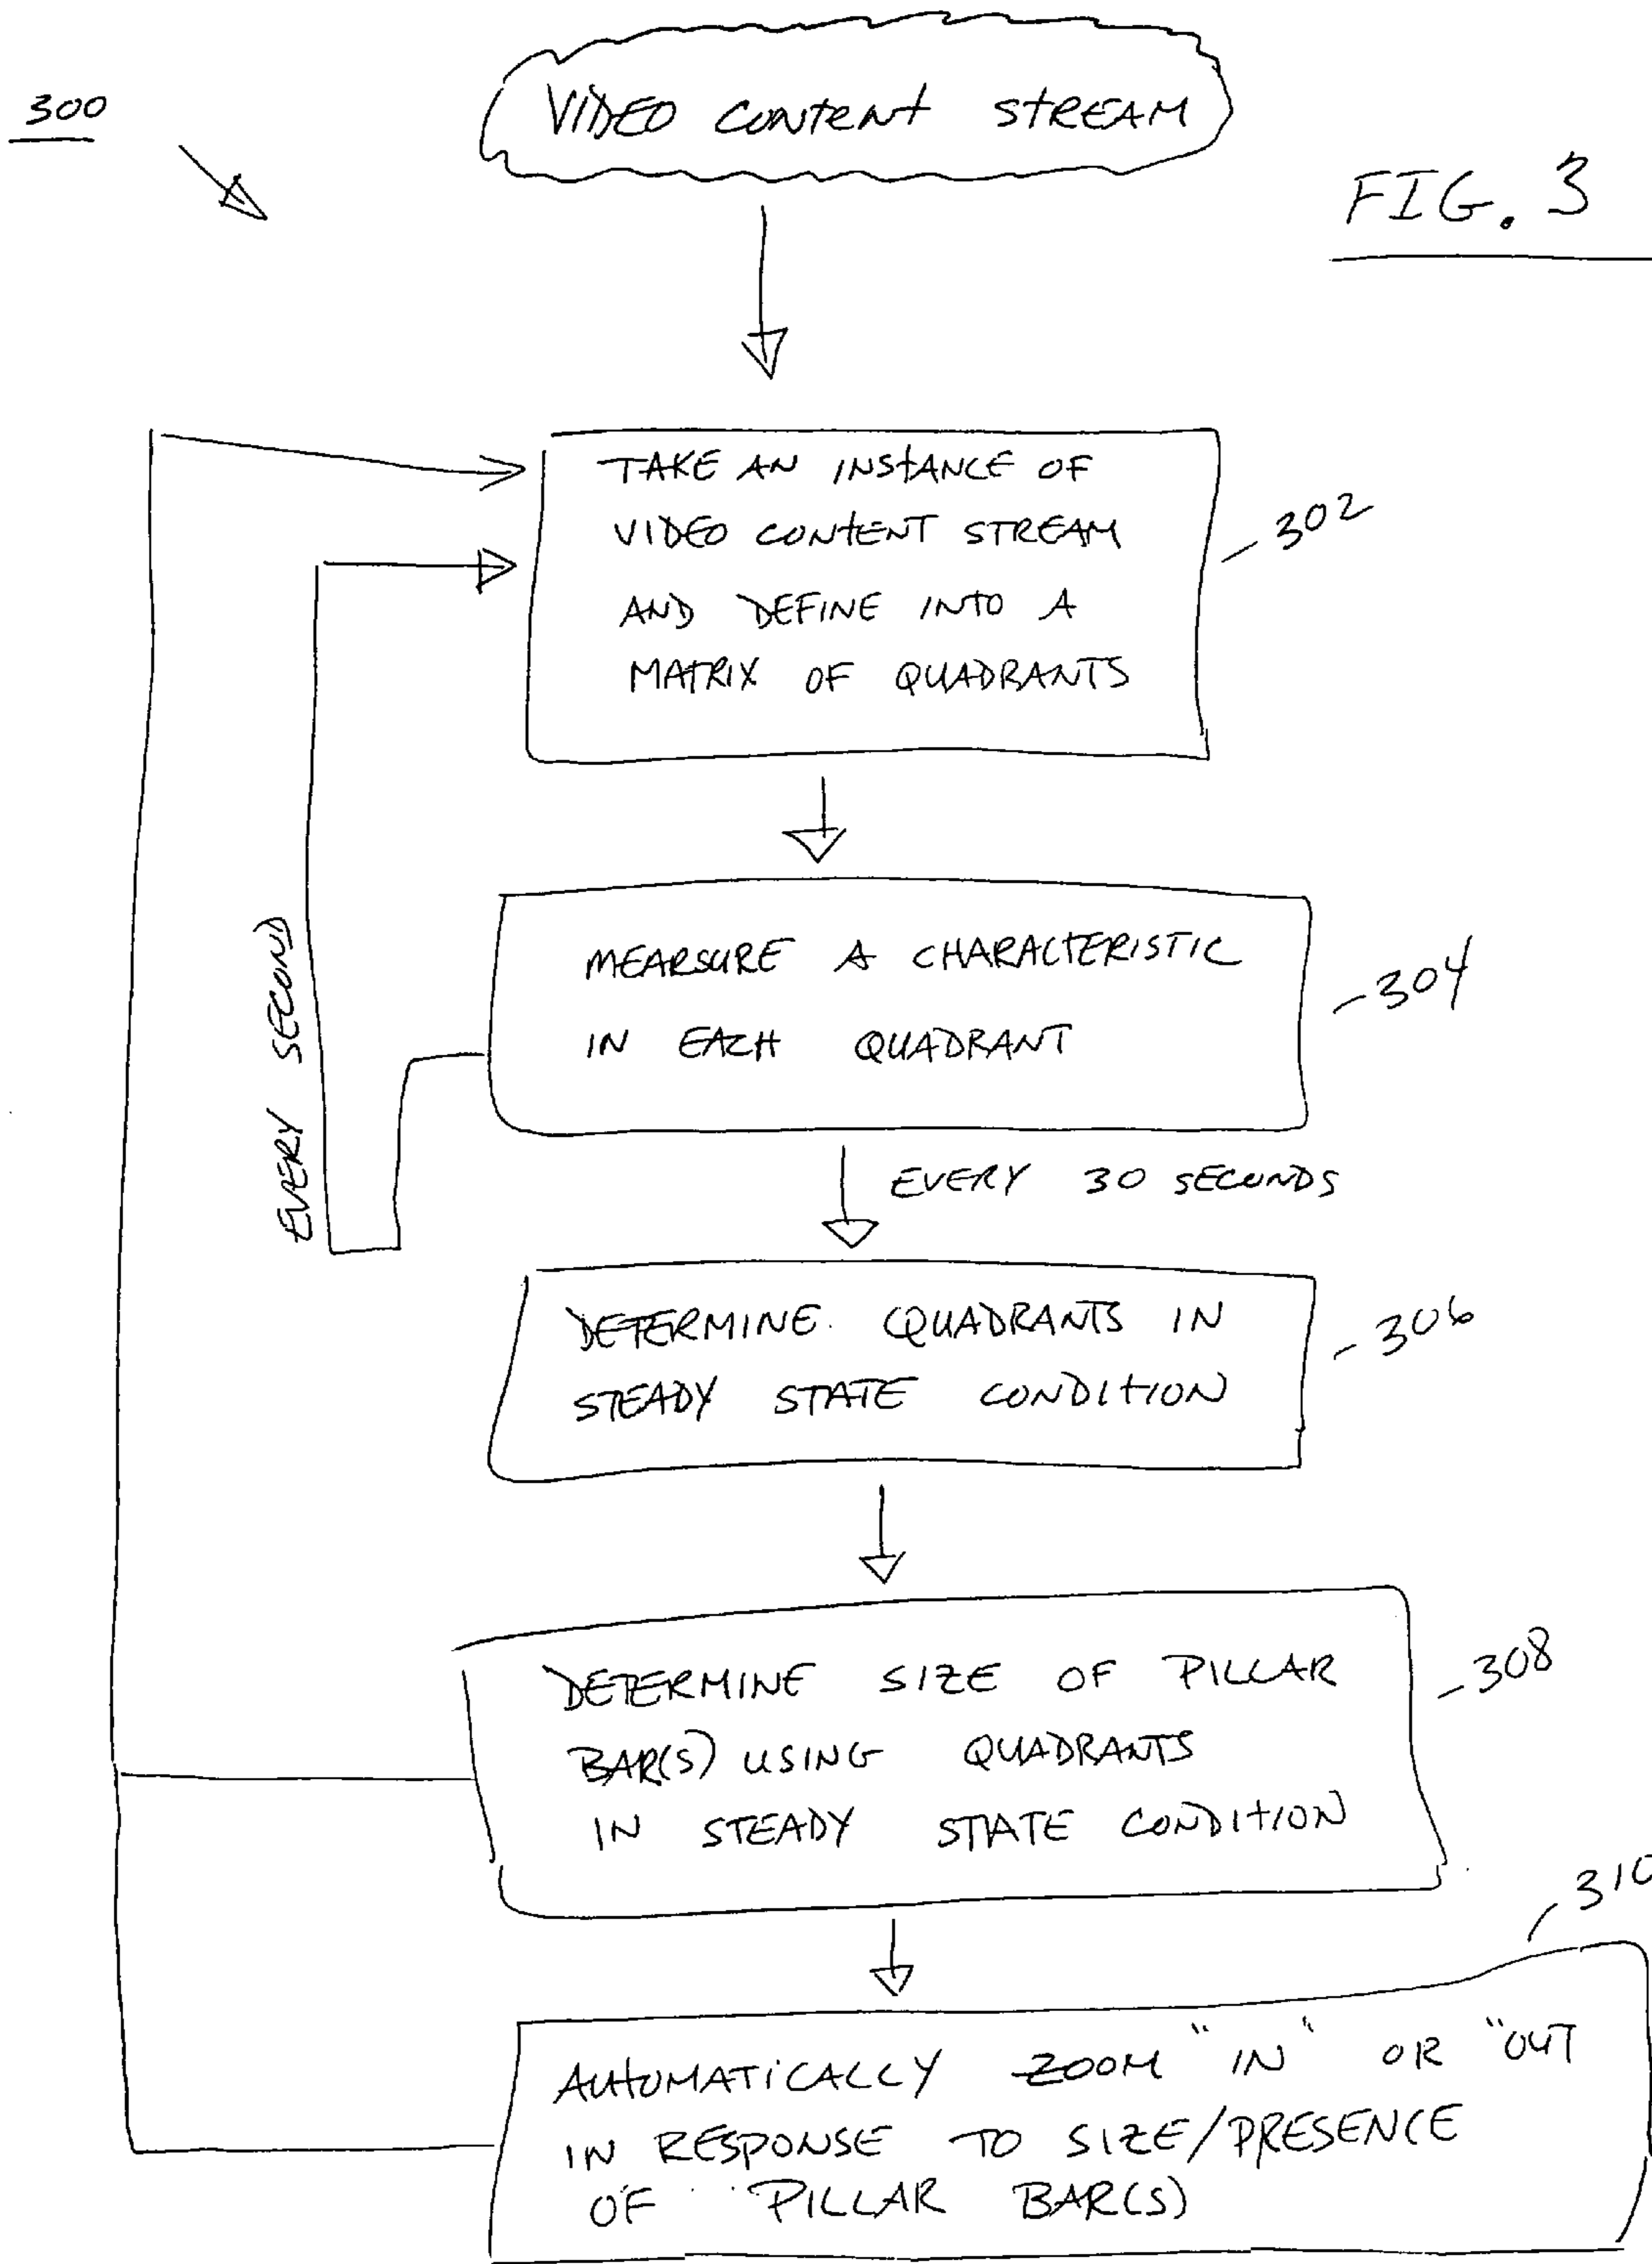 300
VIDEO CONTENT STREAM
FIG. 3
TAKE AN INSTANCE OF
VIDEO CONTENT STREAM
AND DEFINE INTO A
MATRIX OF QUADRANTS
302
MEARSURE A CHARACTERISTIC
IN EACH QUADRANT
304
EVERY SECOND
EVERY 30 SECONDS
DETERMINE QUADRANTS IN
STEADY STATE CONDITION
306
DETERMINE SIZE OF PILLAR
BAR(S) USING QUADRANTS
IN STEADY STATE CONDITION
308
310
AUTOMATICALLY ZOOM "IN" OR "OUT
IN RESPONSE TO SIZE/PRESENCE
OF PILLAR BAR(S)